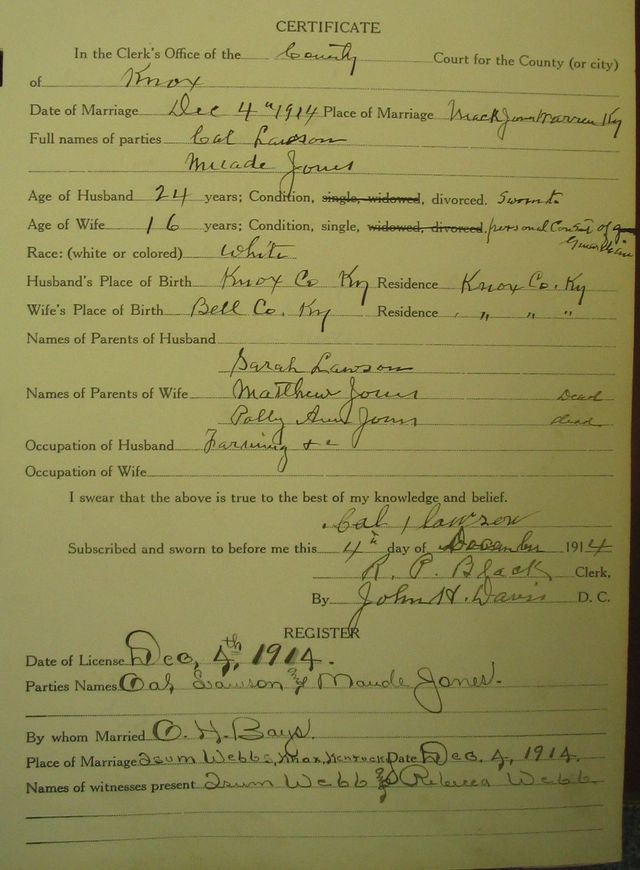 CERTIFICATE
In the Clerk's Office of the County Court for the County (or city)
of Knox
Date of Marriage Dec 4th 1914 Place of Marriage Mack Jones Warren Ky
Full names of parties Cal Lawson
Meade Jones
Age of Husband 24 years; Condition, single, widowed, divorced.
Age of Wife 16 years; Condition, single, widowed, divorced. personal Consent of
Guardian
Race: (white or colored) White
Husband's Place of Birth Knox Co Ky Residence Knox Co. Ky
Wife's Place of Birth Bell Co. Ky Residence " " "
Names of Parents of Husband
Sarah Lawson
Names of Parents of Wife Matthew Jones Dead
Polly Ann Jones dead
Occupation of Husband Farming &c
Occupation of Wife
I swear that the above is true to the best of my knowledge and belief.
Cal Lawson
Subscribed and sworn to before me this 4th day of December 1914
R. P. Black Clerk,
By John H. Davis D. C.
REGISTER
Date of License Dec, 4th, 1914.
Parties Names Cal, Lawson & Maude Jones.
By whom Married O. H. Bays.
Place of Marriage Isum Webbs, Knox, Kentucky Date Dec. 4, 1914.
Names of witnesses present Isum Webb & Rebecca Webb